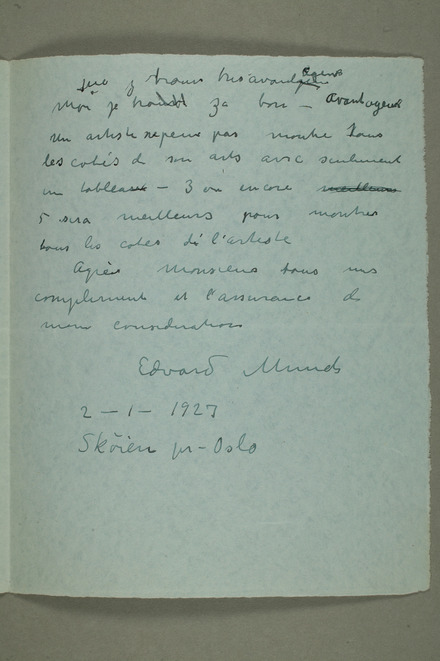 que y trouve très avantageux
Moi je trouve ça bon – avantageux
Un artiste ne peux pas montre tous
les cotés de son arts avec seulement
un tableaux – 3 ou encore meilleurs
5 sera meilleurs pour montrer
tous les cotes de l'artiste
Agrées Monsieur tous mes
complements et l'assurance de
mon considerations
Edvard Munch
2 – 1 – 1927
Sköien pr – Oslo